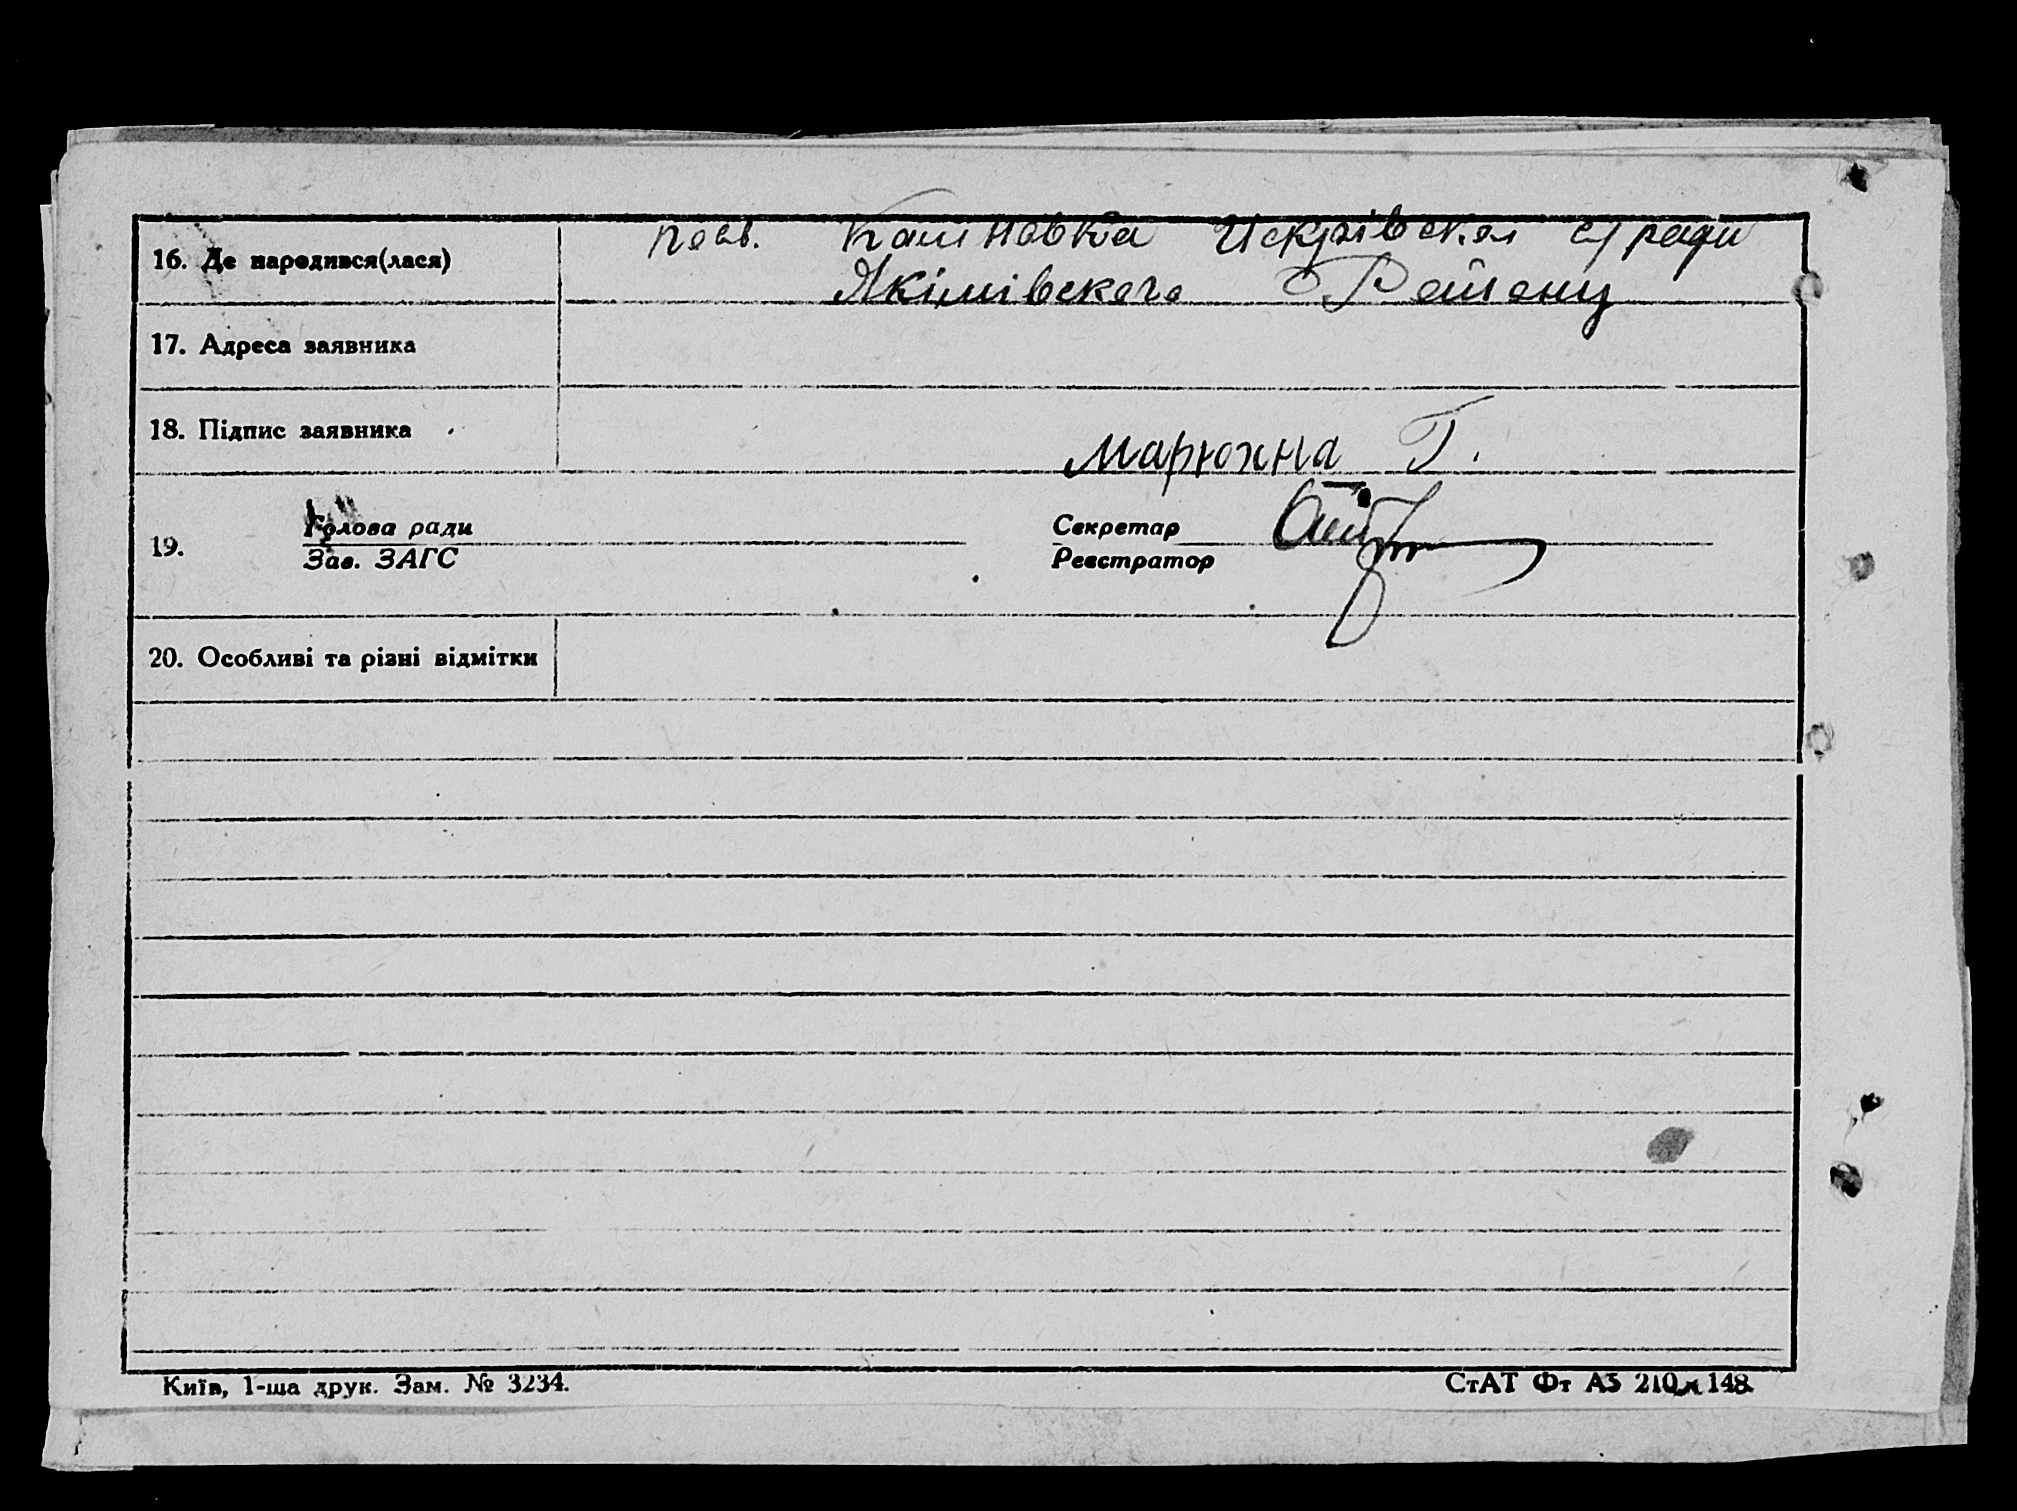 16. Де народився(лася) посв. Калиновка Искрівскоя с/ ради
Якімівского Району
17. Адреса заявника
18. Підпис заявника Марюхна Г.
19. Голова ради Секретар
Зав. ЗАГС Реєстратор
20. Особливі та різні відмітки
Київ, 1-ша друк. Зам. № 3234. СтАТ Фт А5 210 x 148.